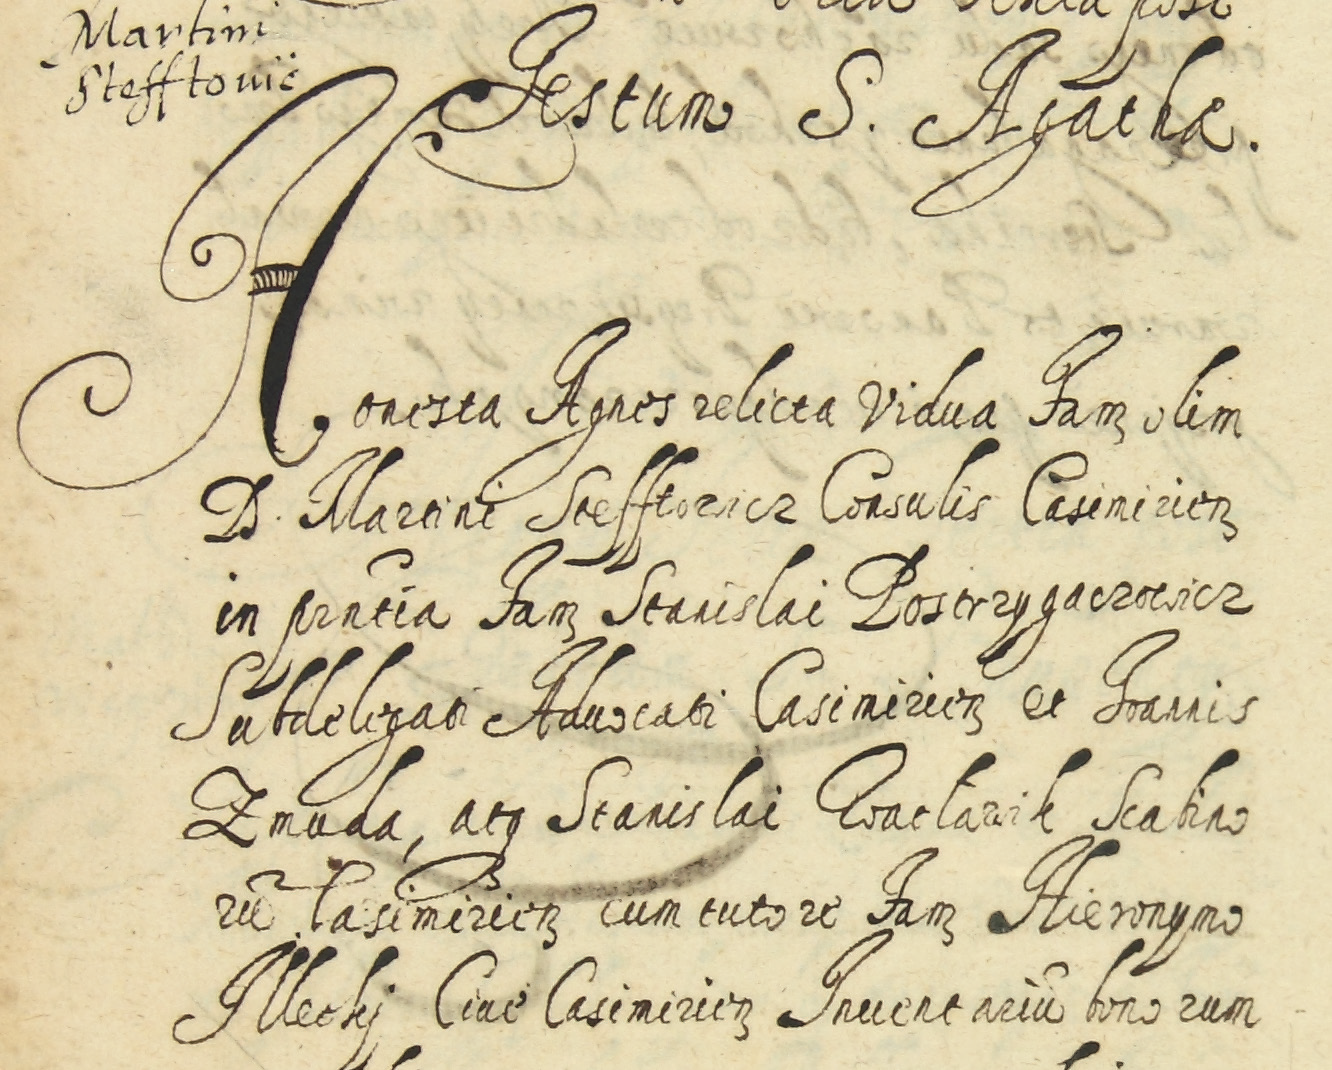 Martini
Stefftovic
post
Festum S. Agathæ.
Honesta Agnes relicta Vidua Famȝ olim
D. Martini Stefftowicz Consulis Casimirienȝ
in prntia Famȝ Stanislai Postrzygaczowicz
Subdelegati Aduocati Casimirienȝ et Joannis
Zmuda, atq Stanislai Wactawik Scabino
rũ Casimirienȝ cum tutore Famȝ Hieronymo
Illeckj Ciue Casimirienȝ Inuentariũ bonorum